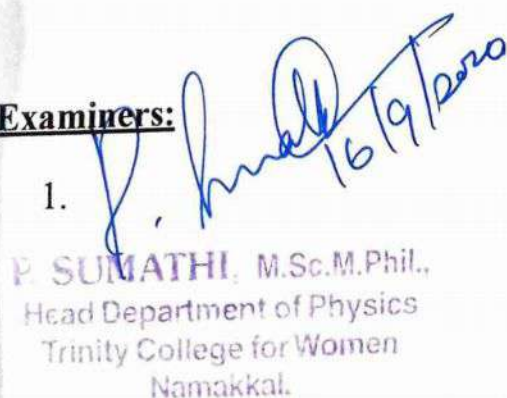 Examiners:
1. P. Sumathi
16/9/2020
P. SUMATHI, M.Sc.M.Phil.,
Head Department of Physics
Trinity College for Women
Namakkal.